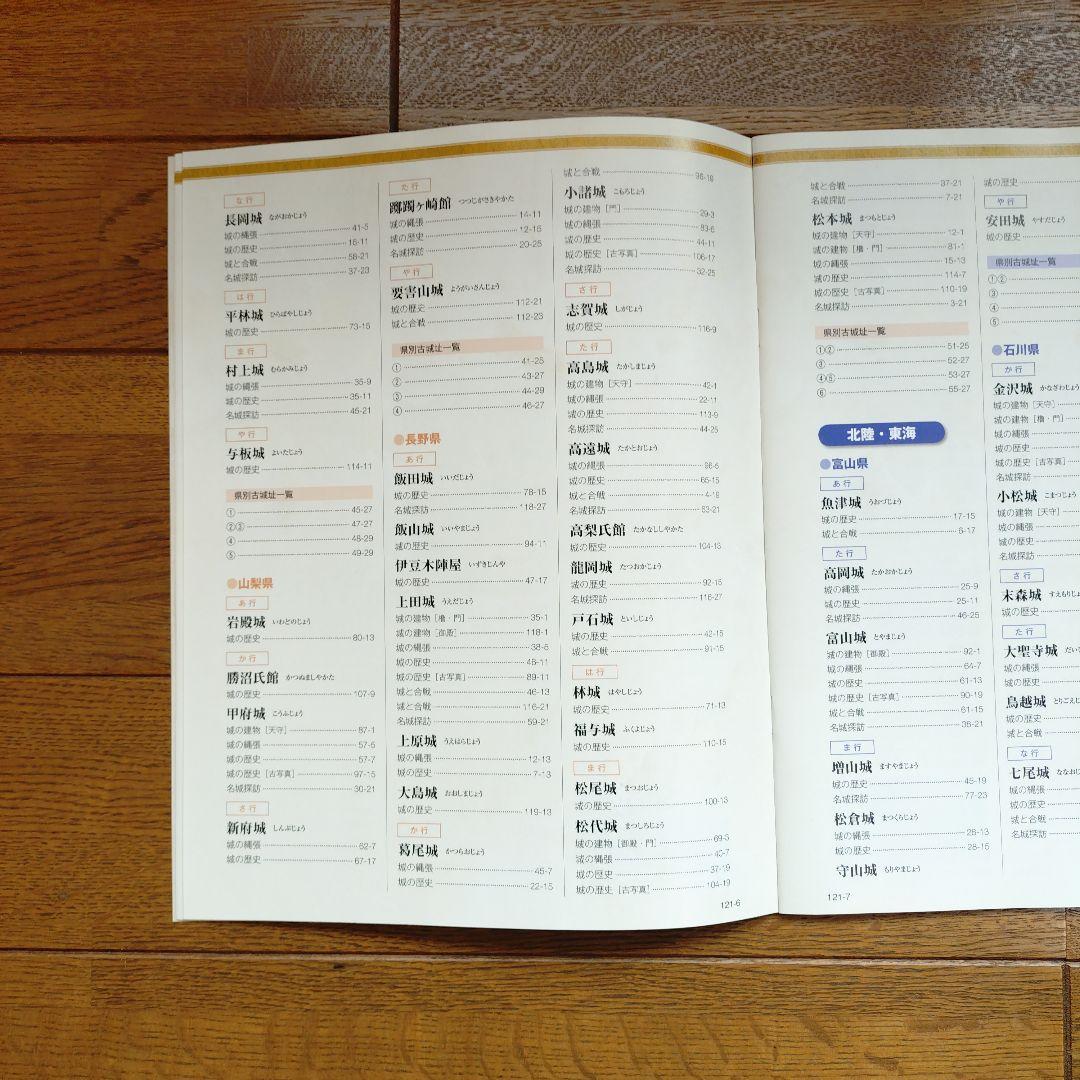 な 行
長岡城 ながおかじょう
城の縄張 41-5
城の歴史 16-11
城と合戦 58-21
名城探訪 37-23
は 行
平林城 ひらばやしじょう
城の歴史 73-15
ま 行
村上城 むらかみじょう
城の縄張 35-9
城の歴史 35-11
名城探訪 45-21
や 行
与板城 よいたじょう
城の歴史 114-11
県別古城址一覧
① 45-27
②③ 47-27
④ 48-29
⑤ 49-29
●山梨県
あ 行
岩殿城 いわどのじょう
城の歴史 80-13
か 行
勝沼氏館 かつぬましやかた
城の歴史 107-9
甲府城 こうふじょう
城の建物［天守］ 87-1
城の縄張 57-5
城の歴史 57-7
城の歴史［古写真］ 97-15
名城探訪 30-21
さ 行
新府城 しんぷじょう
城の縄張 62-7
城の歴史 67-17
た 行
躑躅ヶ崎館 つつじがさきやかた
城の縄張 14-11
城の歴史 12-15
名城探訪 20-25
や 行
要害山城 ようがいさんじょう
城の歴史 112-21
城と合戦 112-23
県別古城址一覧
① 41-25
② 43-27
③ 44-29
④ 46-27
●長野県
あ 行
飯田城 いいだじょう
城の歴史 78-15
名城探訪 118-27
飯山城 いいやまじょう
城の歴史 94-11
伊豆木陣屋 いずきじんや
城の歴史 47-17
上田城 うえだじょう
城の建物［櫓・門］ 35-1
城の建物［御殿］ 118-1
城の縄張 38-5
城の歴史 46-11
城の歴史［古写真］ 89-11
城と合戦 46-13
城と合戦 116-21
名城探訪 59-21
上原城 うえはらじょう
城の縄張 12-13
城の歴史 7-13
大島城 おおしまじょう
城の歴史 119-13
か 行
葛尾城 かつらおじょう
城の縄張 45-7
城の歴史 22-15
城と合戦 96-19
小諸城 こもろじょう
城の建物［門］ 29-3
城の縄張 83-5
城の歴史 44-11
城の歴史［古写真］ 106-17
名城探訪 32-25
さ 行
志賀城 しがじょう
城の歴史 116-9
た 行
高島城 たかしまじょう
城の建物［天守］ 42-1
城の縄張 22-11
城の歴史 113-9
名城探訪 44-25
高遠城 たかとおじょう
城の縄張 96-5
城の歴史 65-15
城と合戦 4-19
名城探訪 53-21
高梨氏館 たかなししやかた
城の歴史 104-13
龍岡城 たつおかじょう
城の歴史 92-15
名城探訪 116-27
戸石城 といしじょう
城の歴史 42-15
城と合戦 91-15
は 行
林城 はやしじょう
城の歴史 71-13
福与城 ふくよじょう
城の歴史 110-15
ま 行
松尾城 まつおじょう
城の歴史 100-13
松代城 まつしろじょう
城の建物［御殿・門］ 69-3
城の縄張 40-7
城の歴史 37-19
城の歴史［古写真］ 104-19
121-6
城と合戦 37-21
名城探訪 7-21
松本城 まつもとじょう
城の建物［天守］ 12-1
城の建物［櫓・門］ 81-1
城の縄張 15-13
城の歴史 114-7
城の歴史［古写真］ 110-19
名城探訪 3-21
県別古城址一覧
①② 51-25
③ 52-27
④⑤ 53-27
⑥ 55-27
北陸・東海
●富山県
あ 行
魚津城 うおづじょう
城の歴史 17-15
城と合戦 6-17
た 行
高岡城 たかおかじょう
城の縄張 25-9
城の歴史 25-11
名城探訪 46-25
富山城 とやまじょう
城の建物［御殿］ 92-1
城の縄張 64-7
城の歴史 61-13
城の歴史［古写真］ 90-19
城と合戦 61-15
名城探訪 38-21
ま 行
増山城 ますやまじょう
城の歴史 45-19
名城探訪 77-23
松倉城 まつくらじょう
城の縄張 28-13
城の歴史 28-15
守山城 もりやまじょう
121-7
城の歴史
や 行
安田城 やすだじょう
城の歴史
県別古城址一覧
①②
③
④
⑤
●石川県
か 行
金沢城 かなざわじょう
城の建物［天守］
城の建物［櫓・門］
城の縄張
城の歴史
城の歴史［古写真］
名城探訪
小松城 こまつじょう
城の建物［天守］
城の縄張
城の歴史
名城探訪
さ 行
末森城 すえもりじょ
城の歴史
た 行
大聖寺城 だい
城の縄張
城の歴史
鳥越城 とりごえじ
城の歴史
城と合戦
な 行
七尾城 ななお
城の縄張
城の歴史
城と合戦
名城探訪